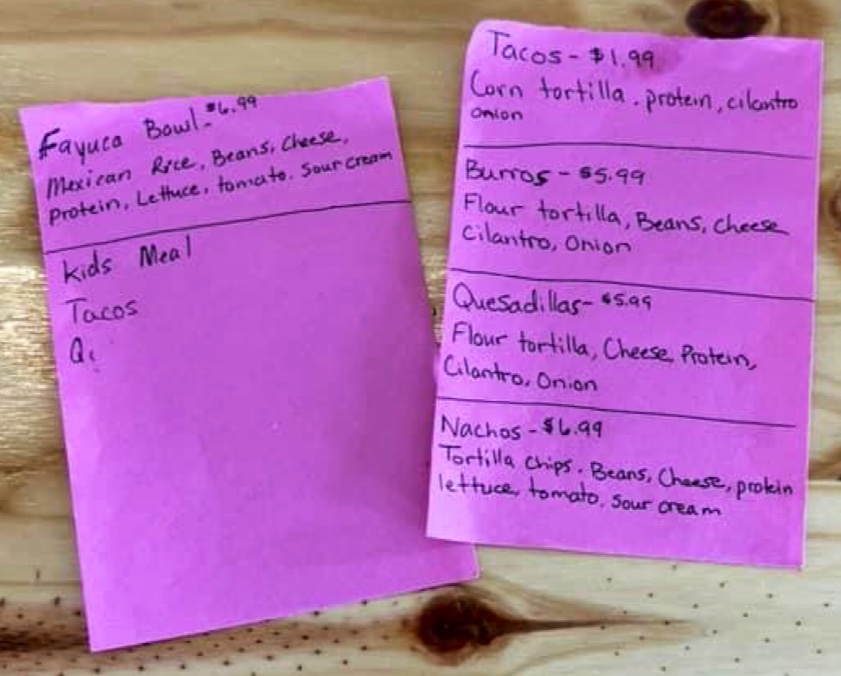 Fayuca Bowl - $6.99
Mexican Rice, Beans, Cheese,
Protein, Lettuce, tomato. Sour cream
Kids Meal
Tacos
Tacos - $1.99
Corn tortilla. protein, cilantro
onion
Burros - $5.99
Flour tortilla, Beans, Cheese
Cilantro, Onion
Quesadillas - $5.99
Flour tortilla, Cheese Protein,
Cilantro, Onion
Nachos - $6.99
Tortilla Chips. Beans, Cheese, protein
lettuce, tomato. Sour cream